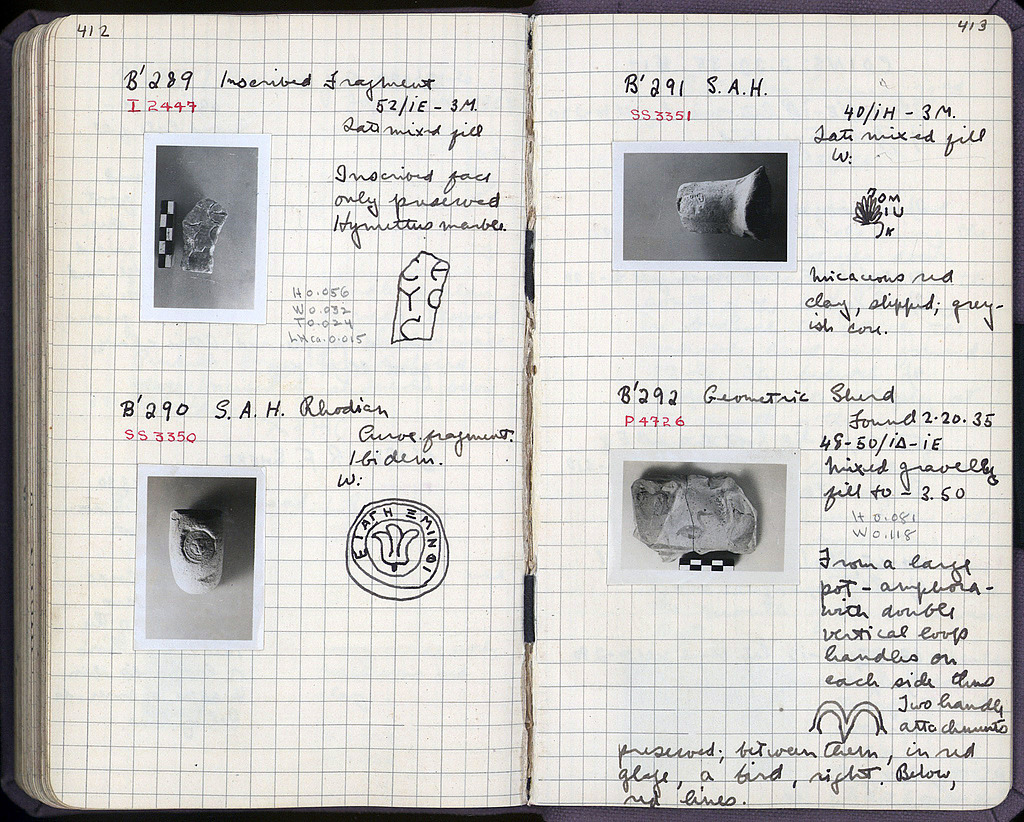 412
B'289 Inscribed Fragment
I 2447
52/ΙΕ - 3M.
Late mixed fill
Inscribed face
only preserved
Hymettus marble.
H 0.056
W 0.032
T 0.024
LH ca. 0.015
C E
Y C
C
B'290 S. A. H. Rhodian
SS 3350
Curve fragment.
Ibidem.
W:
ΕΠΑΓΗ ΞΜΙΝΘΙ
413
B'291 S.A.H.
SS 3351
40/ΙΗ - 3M.
Late mixed fill
W:
Micaceous red
clay, slipped; grey-
ish core.
B'292 Geometric Sherd
P 4726
Found 2.20.35
48-50/ΙΔ-ΙΕ
Mixed gravelly
fill to - 3.50
H 0.081
W 0.118
From a large
pot - amphora -
with double
vertical loop
handles on
each side thus
Two handle
attachments
preserved; between them, in red
glaze, a bird, right. Below,
red lines.